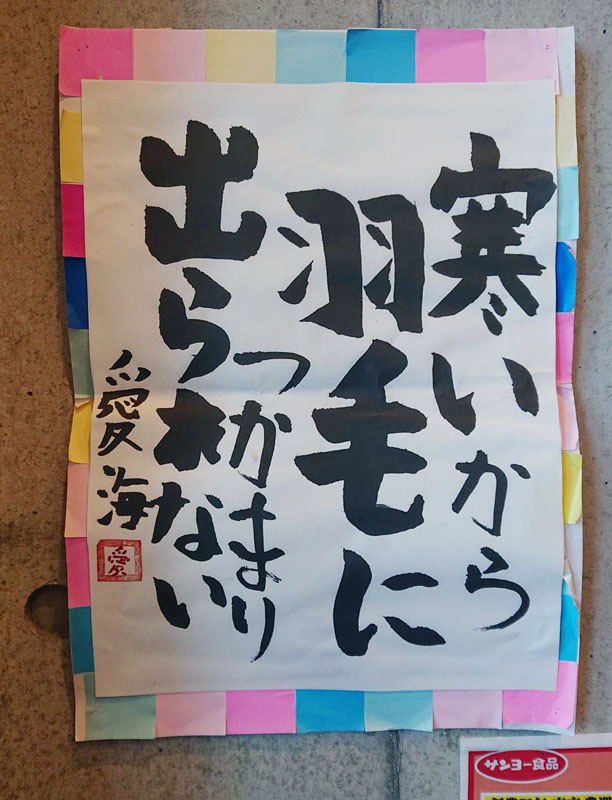 寒いから
羽毛に
つかまり
出られない
愛海
愛
サンヨー食品